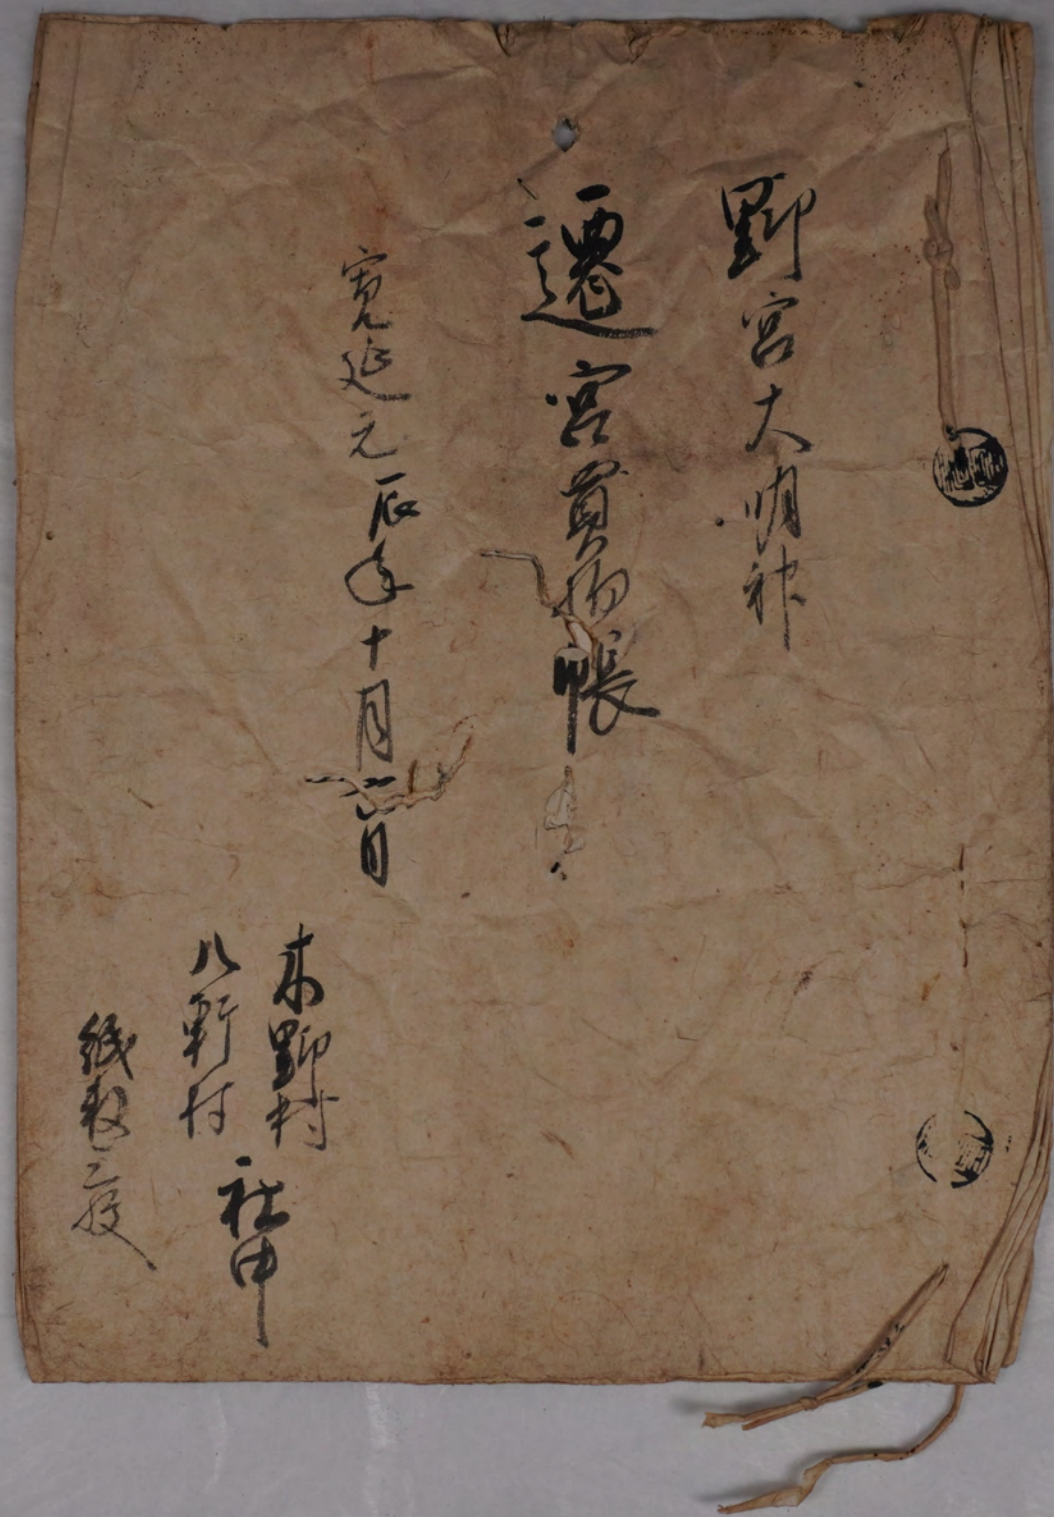 野宮大明神
遷宮買物帳
寛延元辰年十月 日
来野村
八軒村
社中
紙数 枚